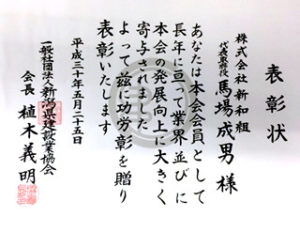 表彰状
株式会社新和組
代表取締役 馬場成男 様
あなたは本会会員として
長年に亘って業界並びに
本会の発展向上に大きく
寄与されました
よって茲に功労彰を贈り
表彰いたします
平成三十年五月二十五日
一般社団法人新潟県建設業協会
会長 植木義明